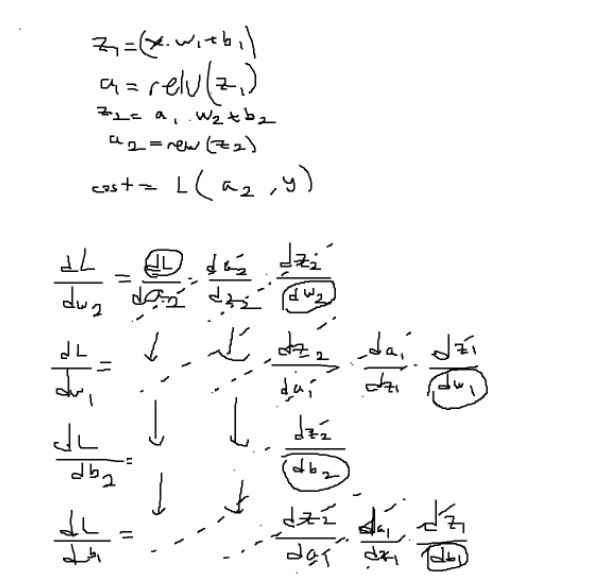 z₁=(x.w₁+b₁)
a₁=relu(z₁)
z₂= a₁.w₂+b₂
a₂=relu(z₂)
cost= L(a₂,y)
dL/dw₂ = dL/da₂ . da₂/dz₂ . dz₂/dw₂
dL/dw₁ = ↓ ↓ dz₂/da₁ . da₁/dz₁ . dz₁/dw₁
dL/db₂ = ↓ ↓ . dz₂/db₂
dL/db₁ = ↓ ↓ dz₂/da₁ . da₁/dz₁ . dz₁/db₁